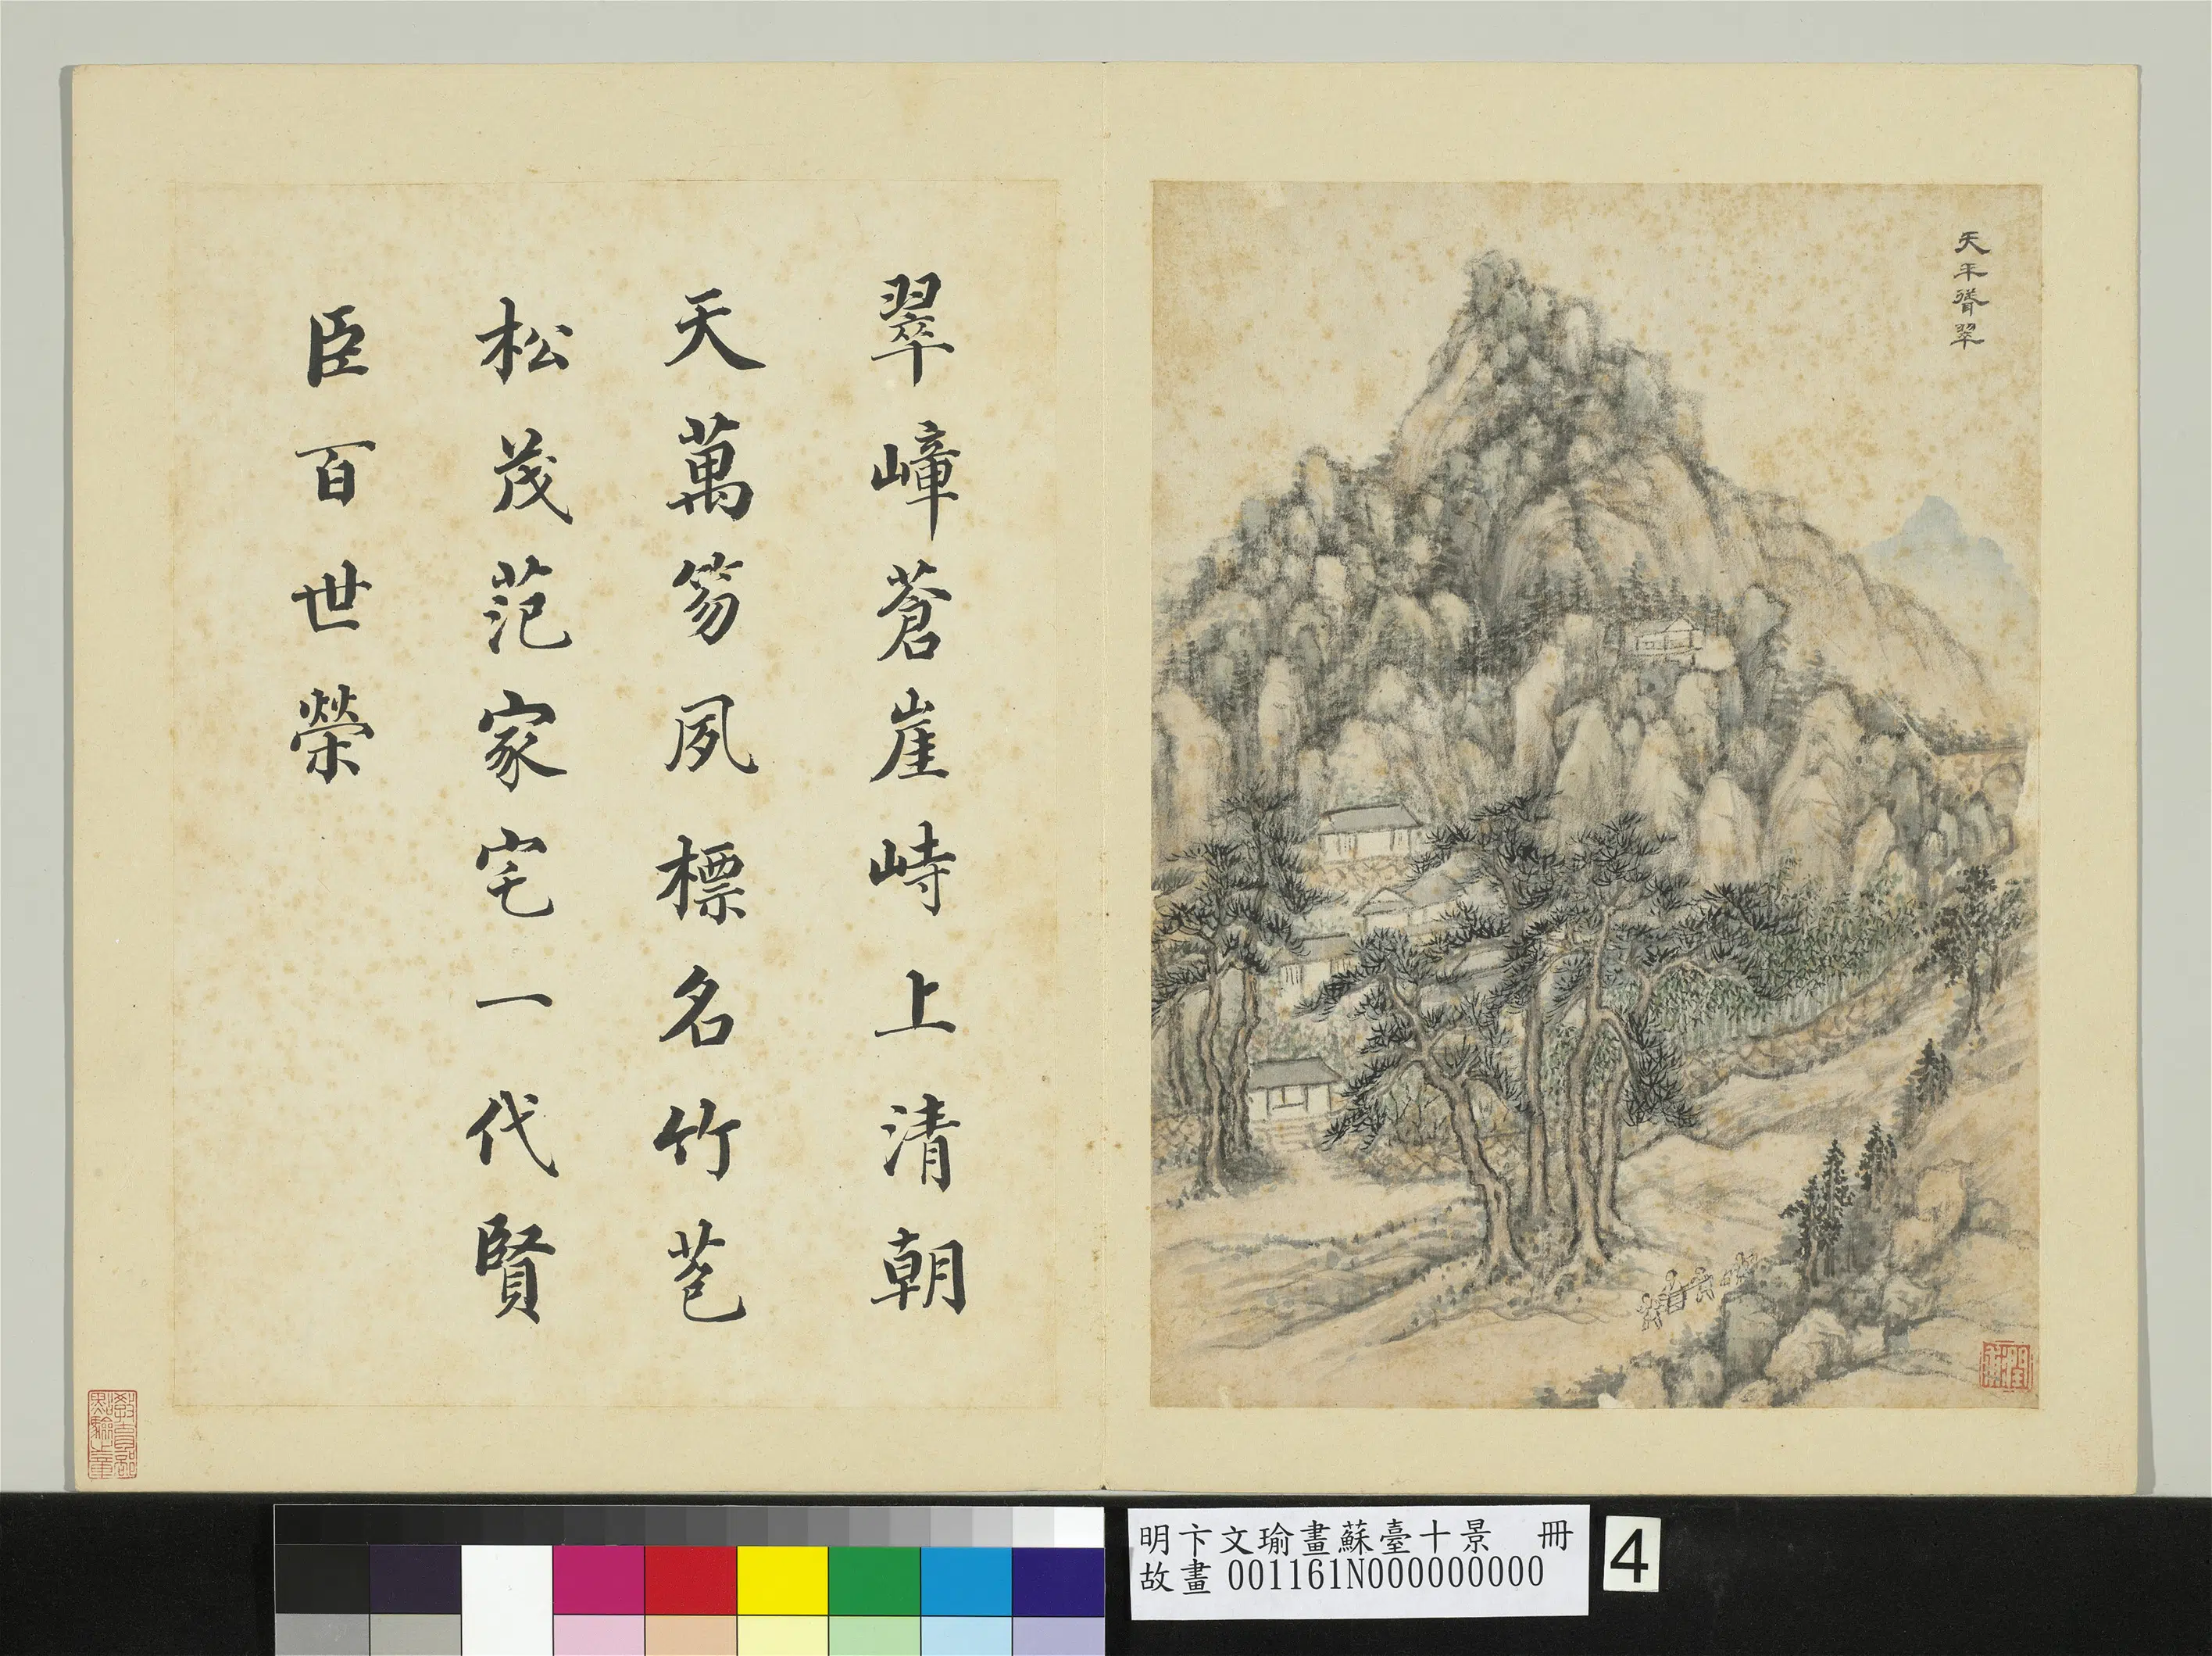 天平聳翠
翠嶂蒼崖峙上清朝
天萬笏夙標名竹苞
松茂范家宅一代賢
臣百世榮
明卞文瑜畫蘇臺十景 冊
故畫 001161N000000000
4